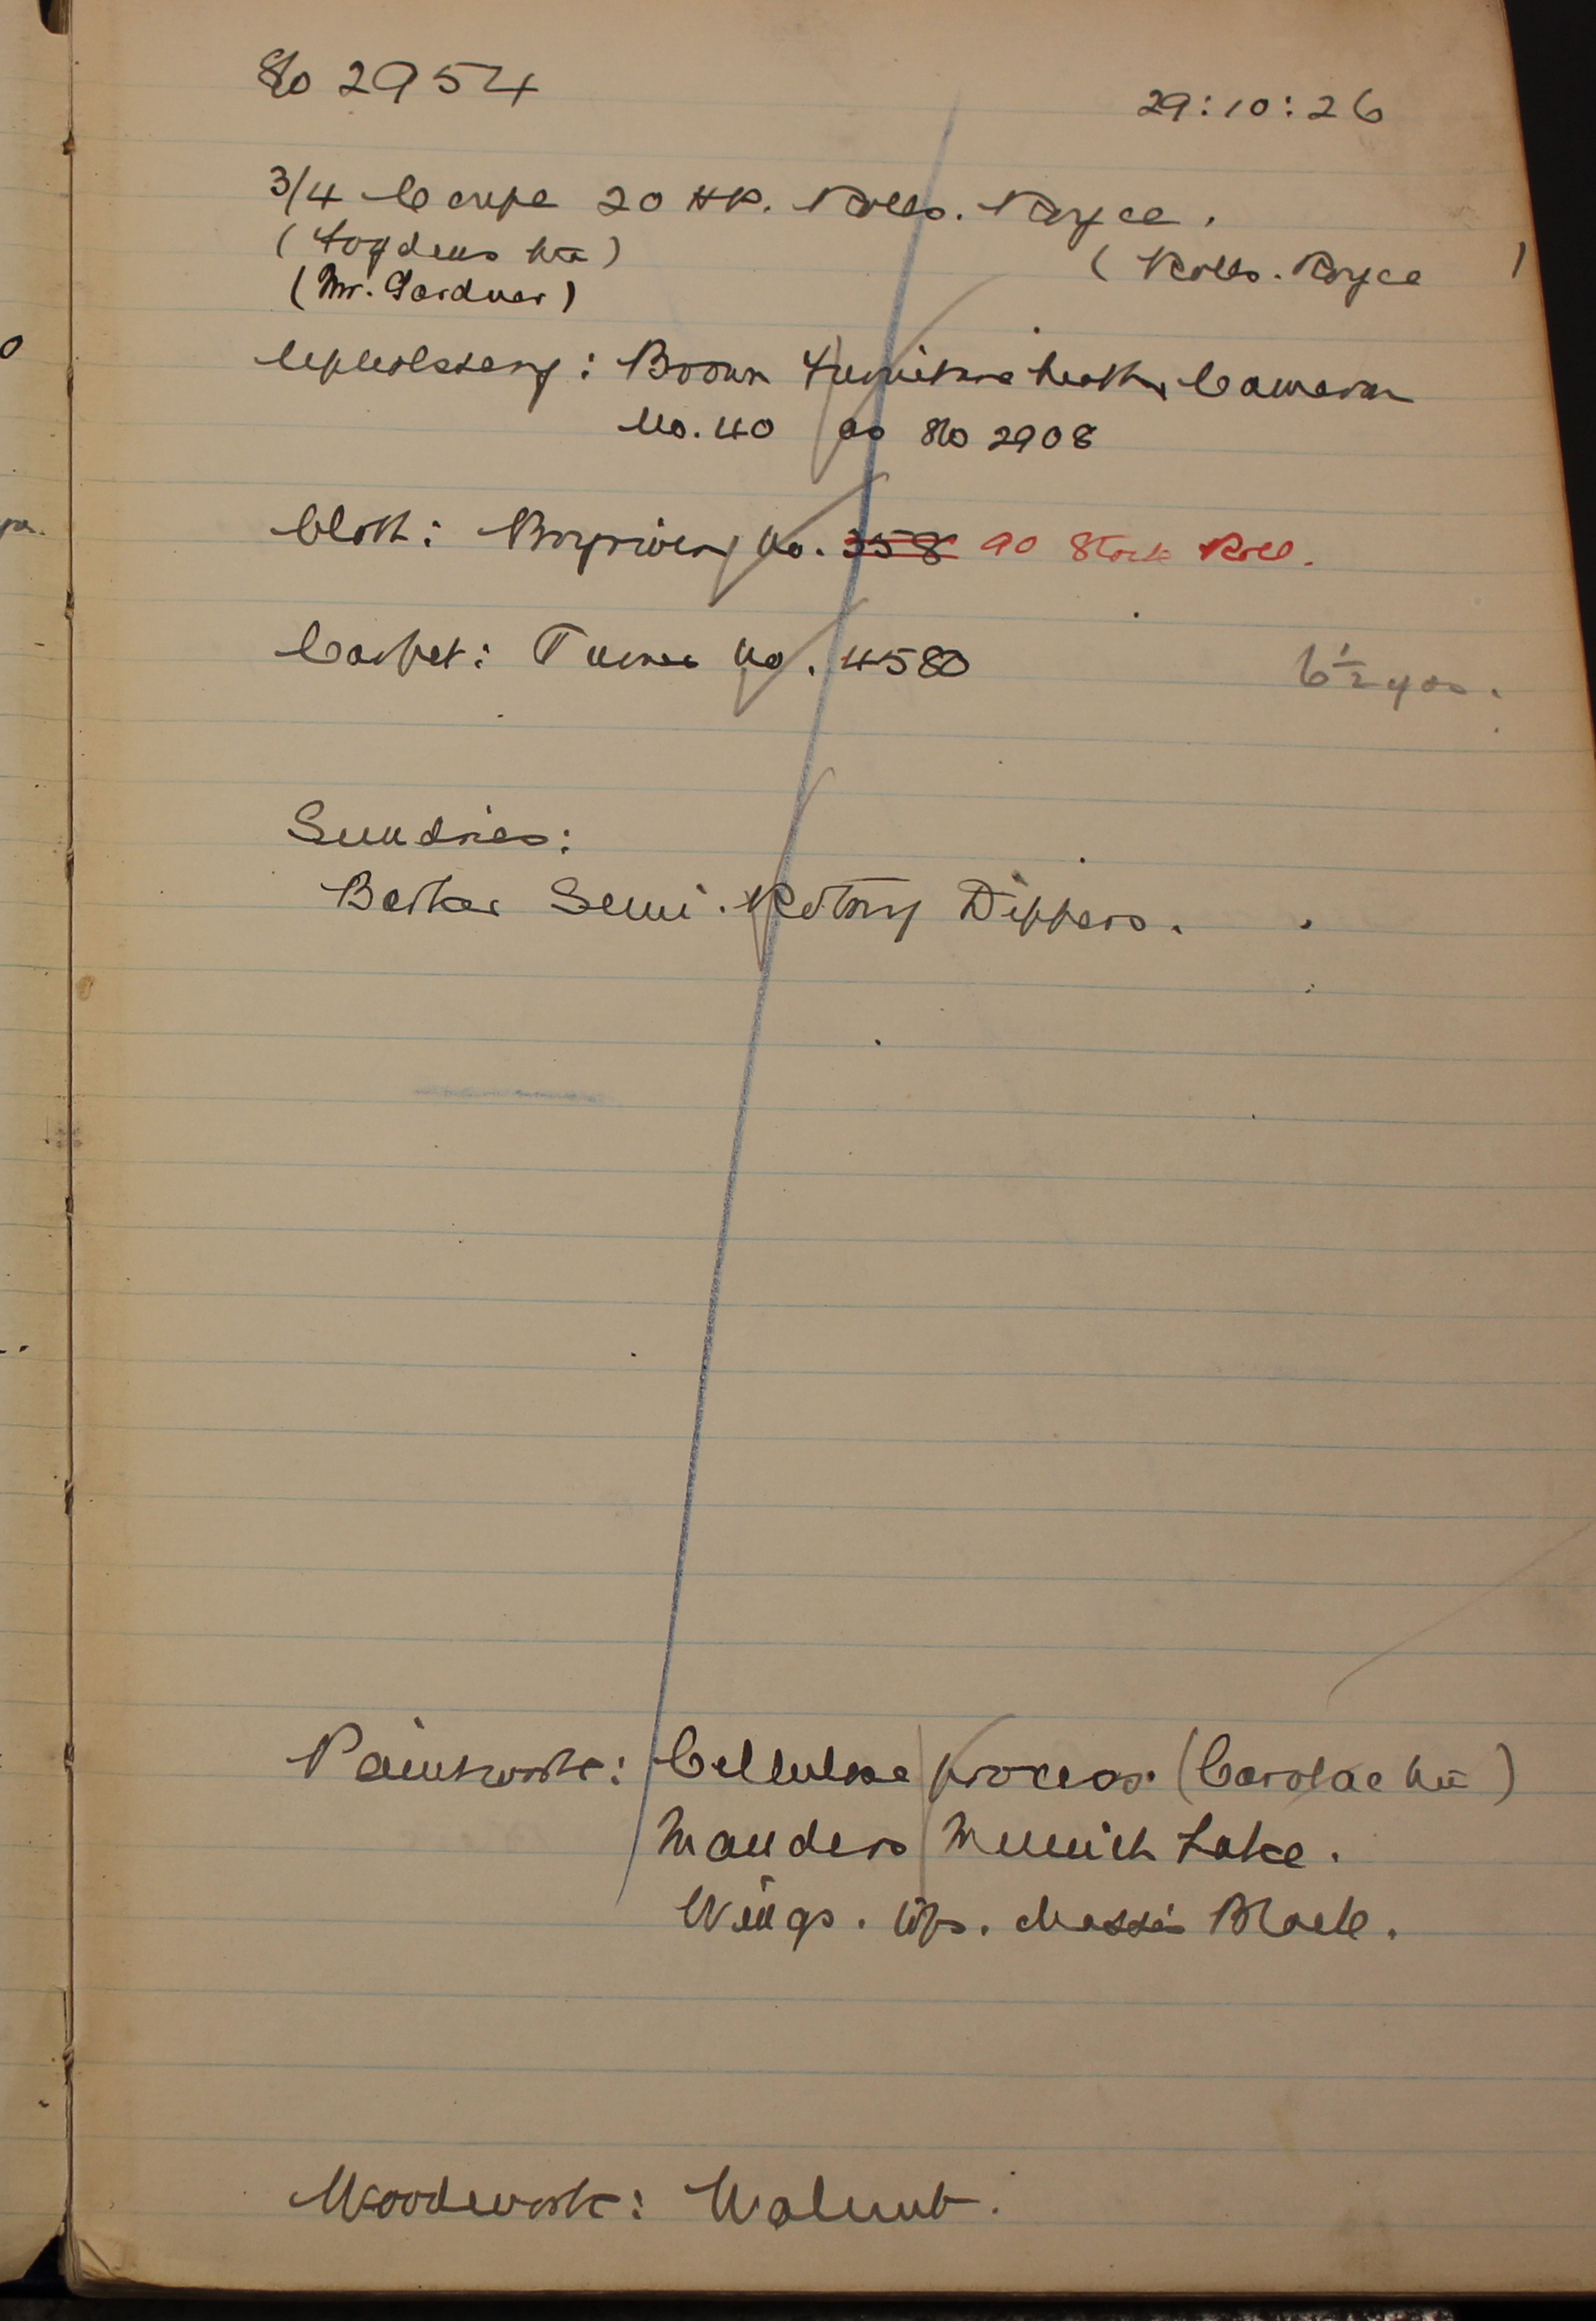 S/o 2954
29:10:26
3/4 Coupe 20 HP. Rolls. Royce.
(Logdens Ltd)
(Rolls. Royce )
(Mr. Gardner)
Upholstery: Brown Furniture Leather Cameron
No. 40 as S/o 2908
Cloth: No. 358 90 Stock Roll.
Carpet: Turner No. 4580
6 1/2 yds.
Sundries:
Barker Semi. Rotary Dippers.
Paintwork: Cellulose process. (Carolac Ltd)
Manders Munich Lake.
Wings. Ups. Chassis Black.
Woodwork: Walnut.